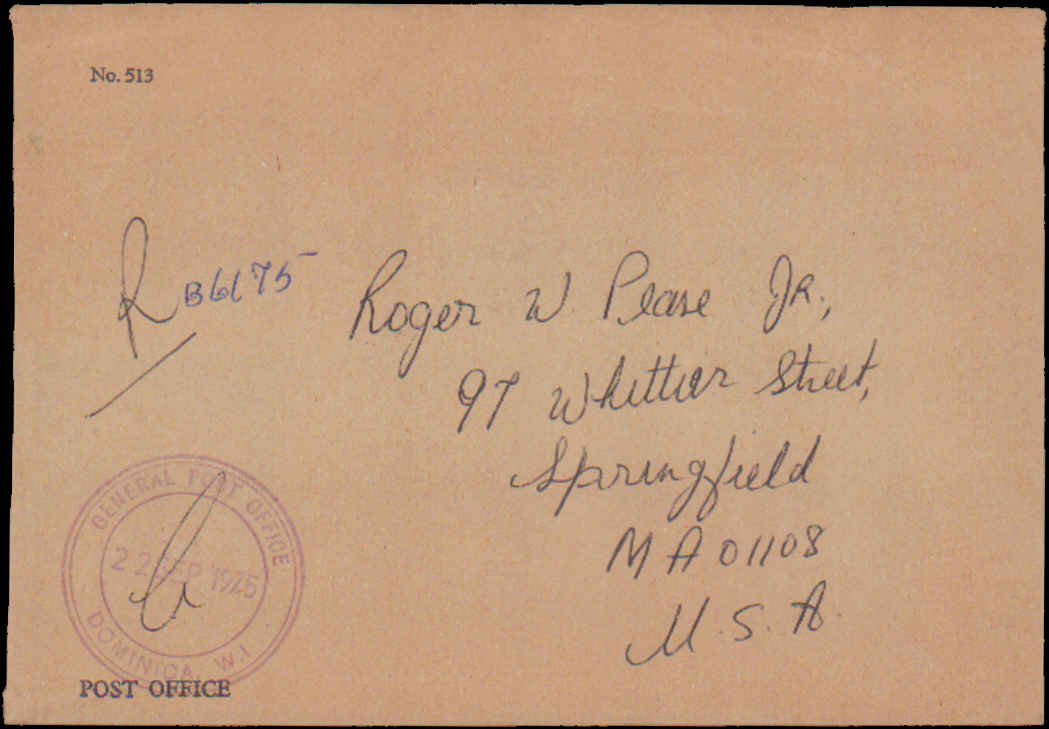 No. 513
R B6175
Roger W. Pease Jr.,
97 Whittier Street,
Springfield
MA 01108
U.S.A.
GENERAL POST OFFICE
22 SEP 1975
DOMINICA W.I
POST OFFICE